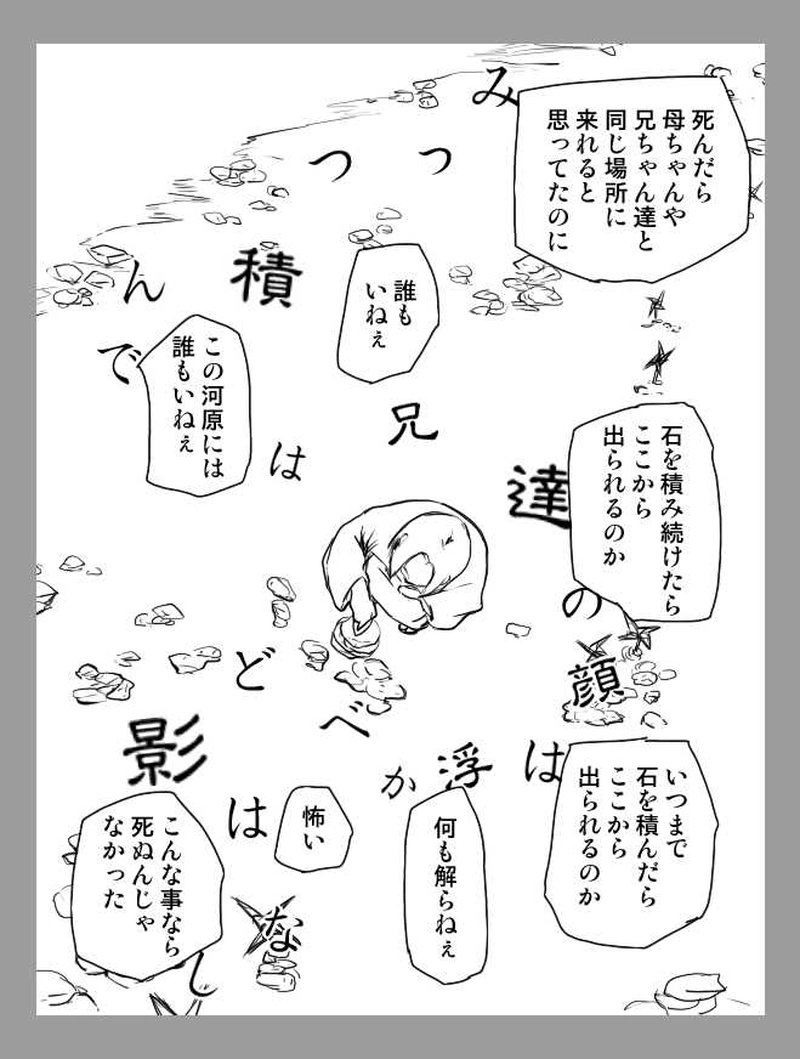 死んだら
母ちゃんや
兄ちゃん達と
同じ場所に
来れると
思ってたのに
誰も
いねぇ
この河原には
誰もいねぇ
石を積み続けたら
ここから
出られるのか
いつまで
石を積んだら
ここから
出られるのか
何も解らねぇ
怖い
こんな事なら
死ぬんじゃ
なかった
みっつ積んでは兄達の顔は浮かべど影はなし